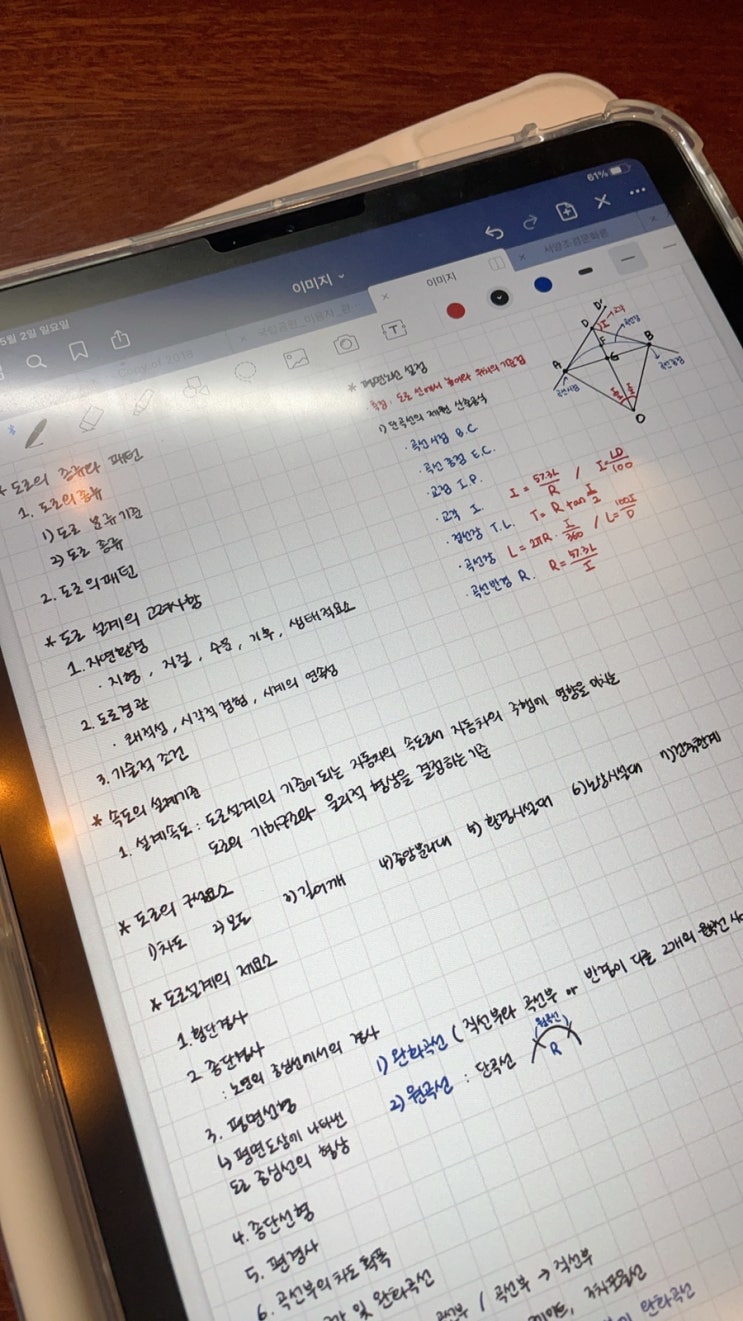 61%
5월 2일 일요일
이미지
서양조경문화론
이미지
국립공원_이용자_관
Copy of 2018
* 도로의 종류와 패턴
1. 도로의 종류
1) 도로 분류기준
2) 도로 종류
2. 도로의 패턴
* 도로 설계의 고려사항
1. 자연환경
· 지형, 지질, 수문, 기후, 생태적요소
2. 도로경관
· 쾌적성, 시각적 경험, 시계의 연속성
3. 기술적 조건
* 속도의 설계기준
1. 설계속도 : 도로설계의 기준이 되는 자동차의 속도로써 자동차의 주행에 영향을 미치는
도로의 기하구조와 물리적 형상을 결정하는 기준
* 도로의 구성요소
1) 차도 2) 보도 3) 길어깨 4) 중앙분리대 5) 환경시설대 6) 노상시설대 7) 건축한계
* 도로설계의 제요소
1. 횡단경사
2. 종단경사
: 노면의 중심선에서의 경사
3. 평면선형
↳ 평면도상에 나타난
도로 중심선의 형상
1) 완화곡선 (직선부와 곡선부 or 반경이 다른 2개의 원곡선 사
2) 원곡선 : 단곡선
원곡선
R
4. 종단선형
5. 편경사
6. 곡선부의 차도 확폭
및 완화곡선
곡선부 / 곡선부 → 직선부
완화곡선
* 평면노선 설정
1) 단곡선의 제원 산출공식
· 곡선시점 B.C.
· 곡선종점 E.C.
· 교점 I.P.
· 교각 I. I = 57.3L/R / I = LD/100
· 접선장 T.L. T = R tan I/2
· 곡선장 L = 2πR · I/360 / L = 100I/D
· 곡선반경 R. R = 57.3L/I
D'
D
I → 교각
F
B
G
A
곡선시점
곡선종점
O